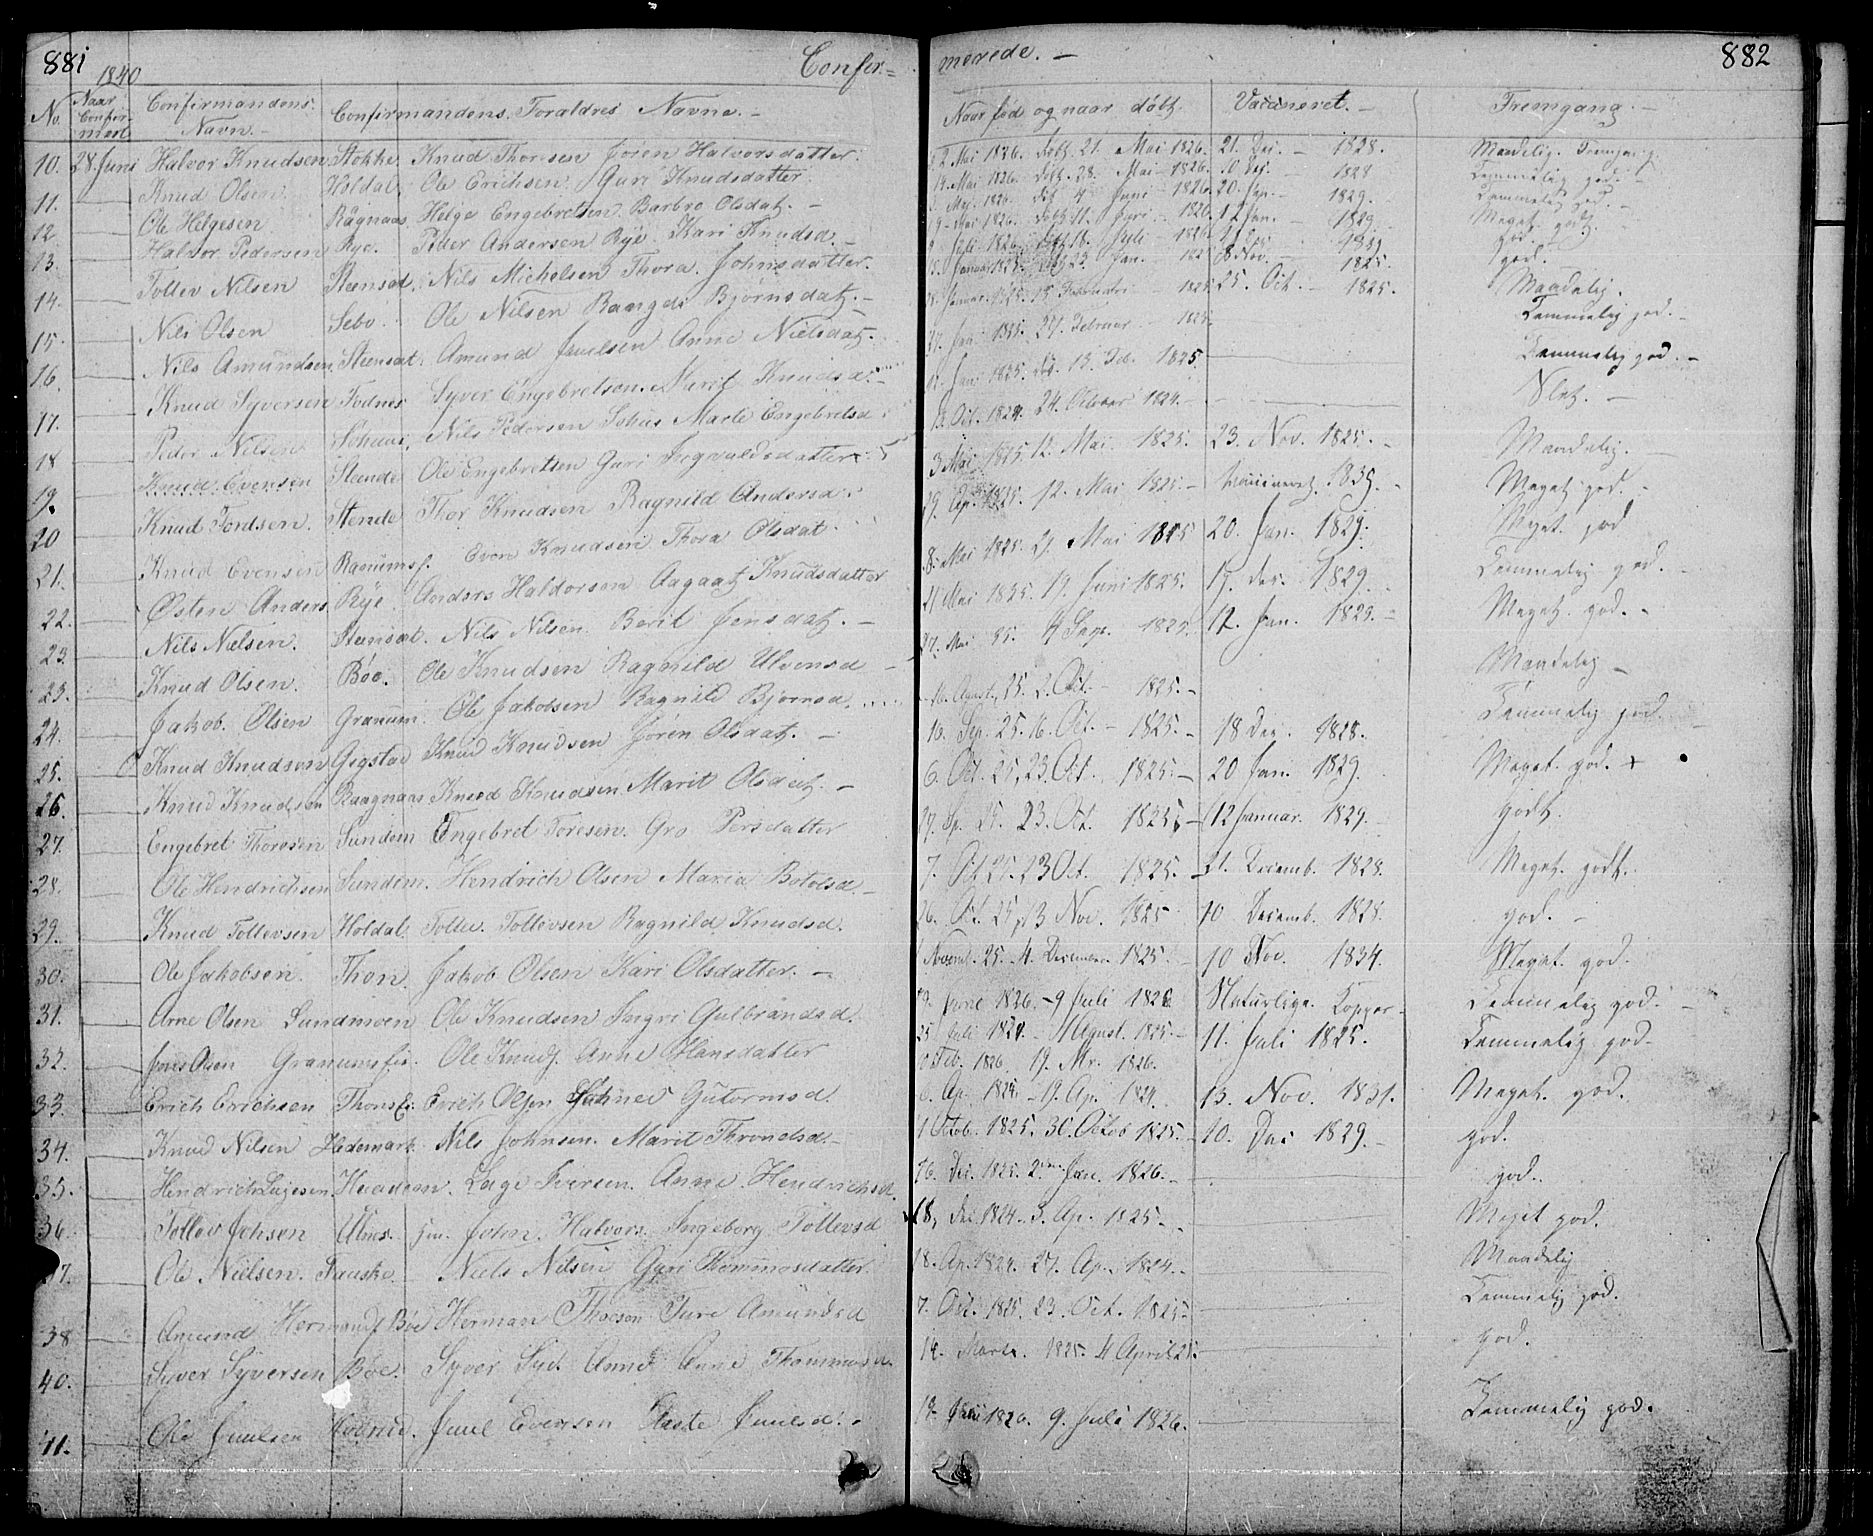 881
1840
Confir=
No.
Naar Confirmert
Confirmandens Navn. -
Confirmandens Foraldres Navne. -
10. 28. Juni Halvor Knudsen Stokke. Knud Thoresen Jøren Halvorsdatter.
11. Knud Olsen. Holdal. Ole Erichsen. Guri Knudsdatter.
12 Ole Helgesen Rågnaas. Helge Engebretsen. Barbro Olsdatz. -
13. Halvor Pedersen Rye. Peder Andersen Rye. Kari Knudsd. -
14. Tollev Nilsen Steensat. Nils Michelsen Thora. Johnsdatter.
15. Nils Olsen Sebo. Ole Nilsen Raangdi Bjørnsdatz. -
16. Nils Amundsen. Steensat. Amund Juulsen Anne Nielsdatz. -
17. Knud Syversen Fodnes Syver Engebretsen. Marit Knudsd. -
18 Peder Nilsen Sohuus. Nils Pedersen Sohus Marte Engebretsd.
19. Knud Evensen Steende Ole Engebretsen Guri Ingvaldsdatter.
20 Knud Tordsen. Stende Thor Knudsen Ragnild Andersd.
21. Knud Evensen Ranumsf. Even Knudsen Thora Olsdat.
22. Østen Anders Rye. Anders Haldorsen Aagaatz Knudsdatter
23. Nils Nielsen. Steensat. Nils Nilsen. Berit Jensdatz. -
23. Knud Olsen. Böe. Ole Knudsen Ragnild Ulvensd -
24. Jakob. Olsen Granum. Ole Jakobsen Ragnild Bjørnsd.
25. Knud Knudsen Gigstad Knud Knudsen Jören Olsdatz. -
26. Knud Knudsen Raagnaas Knud Knudsen. Marit Olsdatz. -
27. Engebret Thoresen Sundem Engebret Toresen. Gro Persdatter
28. Ole Hendrichsen Sundem. Hendrich Olsen Maria Botolsd -
29. Knud Tollevsen Holdal. Tollev. Tollevsen Ragnild Knudsd.
30. Ole Jakobsen. Thon. Jakob Olsen Kari Olsdatter. -
31. Arne Olsen Sundmoen Ole Knudsen Ingri Gulbrandsd.
32. Jens Olsen Granumsfei. Ole Knudz. Anne Hansdatter
33. Erich Erichsen Thons Ei. Erich Olsen Gutormsd.
34. Knud Nilsen Hedemark. Nils Johnsen. Marit Throndsd. -
35. Hendrich Lagesen. Haadem. Lage Iversen. Anne Hendrichsd.
36. Tollov Johsen Ulnes. John. Halvors. Ingeborg Tollevsd
37. Ole Nielsen. Fauske Niels Nilsen Guri Thommosdatter.
38 Amund Hermandz Böe Herman Thorson Ture Amundsd
40. Syver Syversen Böe. Syver Anne Thommasd.
41. Ole Juulsen Juul Evensen Juulsd. -
merede. -
882
Naar fød og naar døbt.
Vaccineret. -
Fremgang. -
2. Mai 1826. döbt. 21. Mai 1826. 21. Dec. - 1828. Maadelig. Fremgang.
14. Mai 1826. döbt. 28. Mai - 1826. 10 Dec. 1828 Temmelig god.
Mai. 1826. döb 4 Juni 1826. 20. Jan. - 1829. Temmelig god. -
9 - Mai 1826. döbt 11. Juni - 1826. 12 Jan. - 1829. Meget godt.
Juli 1826. döbt 16. Juli - 1826. god.
Januar 1825. 23. Jan. 8 Nov. - 1825. god.
Januar 1825. 13 Februari - 1825. 25. Oct. - 1825. Maadelig.
27. Jan. 1825. 27. Februar - 1825. Temmelig god. -
12. Jan. 1825. Dbt. 13. Feb. 1825. Temmelig god. -
13. Oct. 1824. 24. October 1824. - Slet. -
3 Mai 1825. 12. Mai 1825. 23. Nov. 1825. - Maadelig. -
29. Ap. 1825. 12. Mai 1825. - Vaccineret 1839. - Meget god. -
8. Mai 1825. 21. Mai 1825 20. Jan. 1829. Meget god
21 Mai 1825. 19. Juni 1825. 19. Des. 1829. Temmelig god. -
27. Mai 25. 4 Sep. 1825. 12. Jan. 1829. - Meget. god. -
16. August. 25. 2. Oct. - 1825. - Maadelig -
16. Sep. 25. 16. Oct. - 1825. - 18 Dec. 1828. Temmelig god. -
6. Oct. 25, 23. Oct. 1825. - 20 Jan. 1829. Meget. god. +
27. Sp. 25. 23. Oct. 1825. - 12 Januar. 1829. godt.
7. Oct 25. 23 Oct. 1825. - 21. Decemb. 1828. Meget. godt.
26. Oct. 25, 13 Nov. 1825 10. Decemb. 1828. god. -
Novemb. 25. 4. December. 1825. - 10 Nov. 1834. Meget. god.
19. Juni 1826. - 9 Juli 1826 Naturlige. Kopper - Temmelig god. -
25 Juli 1824. - 1 August. 1825. - 11. Juli 1825. Temmelig god -
Feb. 1826 19. Mr. 1826.
6. Ap. 1824 - 19. Ap. 1824. 13. Nov. 1831. Meget. god.
1 Octob. 1825. 30. Octob 1825. - 10. Dec 1829. - god.
16. Dec. 1825. 2den Jan. 1826. - god.
18, Dec 1824. 3. Ap. 1825. - Meget god.
18. Ap. 1824. 27. Ap. 1824. - Maadelig
7. Oct. 1825. 23. Oct. 1825 - Temmelig god.
14. Marts. 1825. 4 April 25. - god.
19. Juni 1826. 9. Juli 1826. Temmelig god.